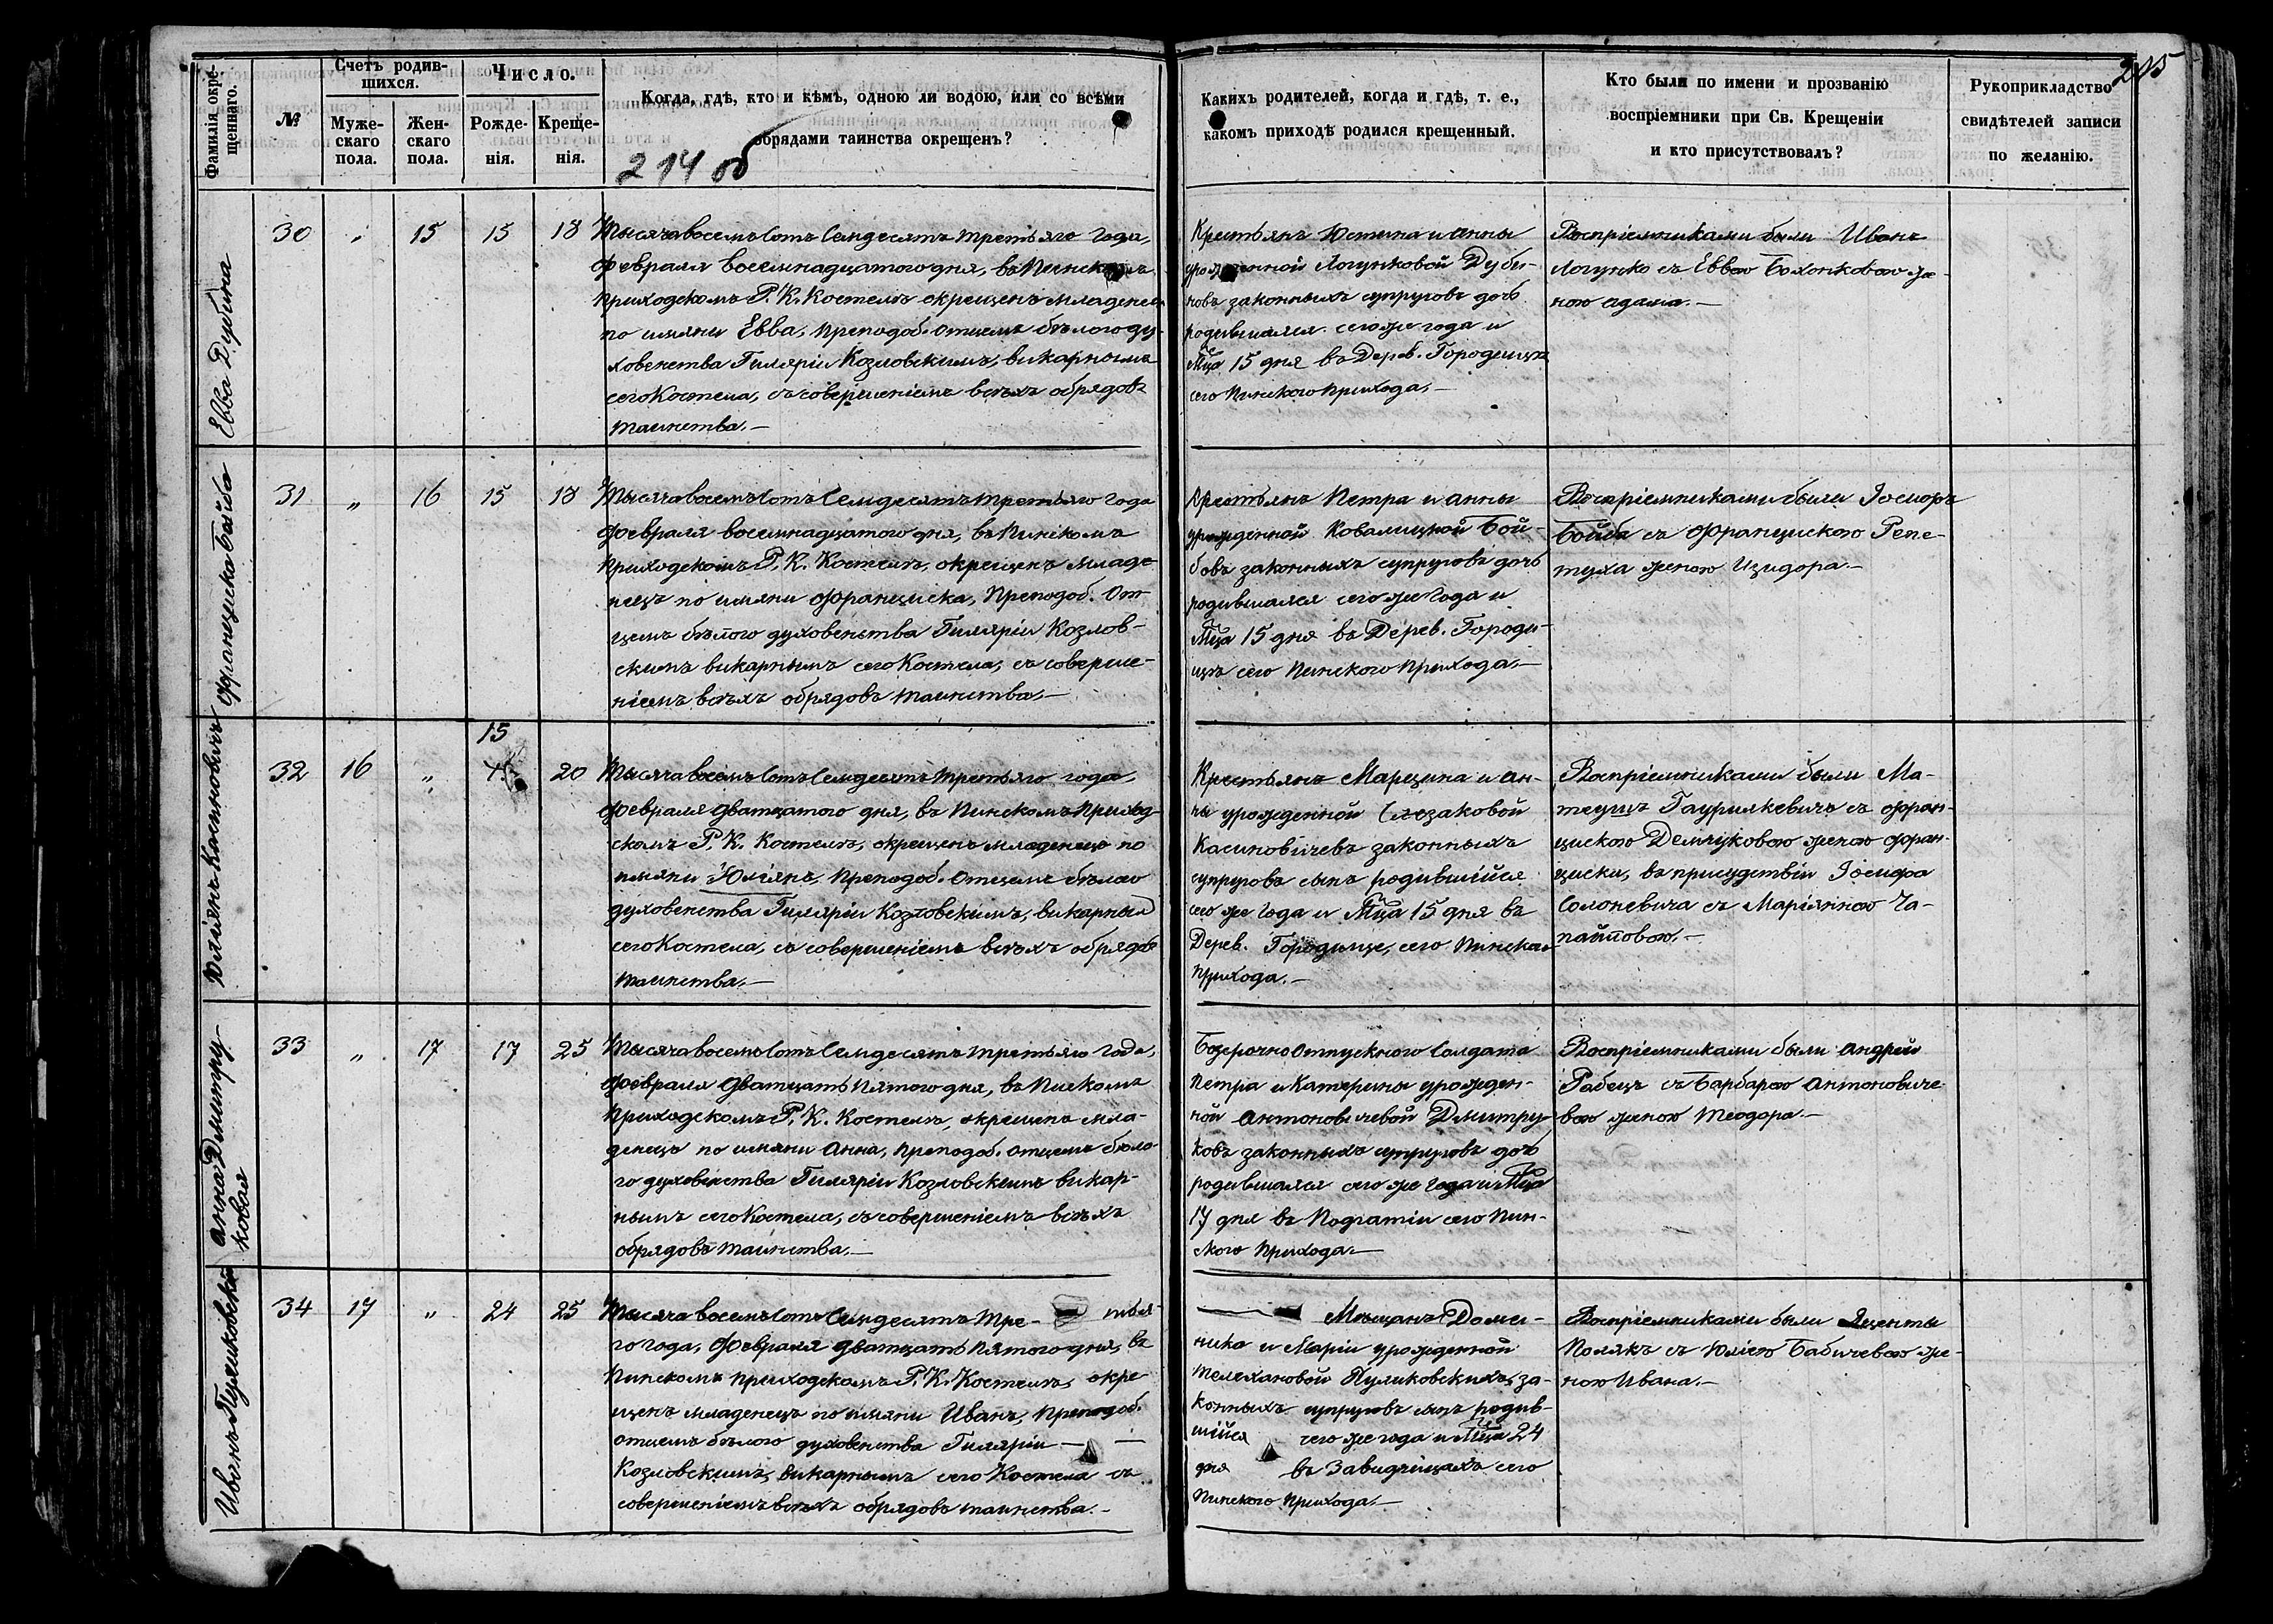 215
Фамилія окре-
щеннаго.
№
Счетъ родив-
шихся.
Муже-
скаго
пола.
Жен-
скаго
пола.
Число.
Рожде-
нія.
Креще-
нія.
Когда, гдѣ, кто и кѣмъ, одною ли водою, или со всѣми
обрядами таинства окрещенъ?
214 об
Какихъ родителей, когда и гдѣ, т. е.,
какомъ приходѣ родился крещенный.
Кто были по имени и прозванію
воспріемники при Св. Крещеніи
и кто присутствовалъ?
Рукоприкладство
свидѣтелей записи
по желанію.
Евва Дубина
30 " 15 15 18
Тысяча восемь Сотъ Семдесятъ третьяго Года,
Февраля восемнадцатого дня, въ Пинскомъ
приходскомъ Р. К. Костелѣ окрещенъ младенец
по имяни Евва, Преподоб. Отцемъ бѣлого ду-
ховенства Гиляріи Козловскимъ, викарнымъ
сего Костела, съ совершеніемъ всѣхъ обрядовъ
таинства.—
Крестьянъ Юстина и Анны
урожденной Логунковой Дуби-
новъ законныхъ супруговъ дочь
родившаяся сего же года и
Мца 15 дня въ Дерев. Городищѣ
сего Пинского прихода.—
Воспріемниками были Иванъ
Логунко съ Еввою Болонковою же-
ною Адама.—
Франциска Бойба
31 " 16 15 18
Тысяча восемь Сотъ Семдесятъ третьяго года
Февраля восемнадцатого дня, въ Пинскомъ
приходскомъ Р. К. Костелѣ, окрещенъ младе-
нецъ по имяни Франциска, Преподоб. От-
цемъ бѣлого духовенства Гиляріи Козлов-
скимъ викарнымъ сего Костела, съ соверше-
ніемъ всѣхъ обрядовъ таинства.—
Крестьянъ Петра и Анны
урожденной Ковалицкой Бой-
бовъ законныхъ супруговъ дочь
родившаяся сего же Года и
Мца 15 дня въ Дерев. Городи-
щѣ сего Пинского прихода.—
Воспріемниками были Іосифъ
Бойба съ Францискою Репе-
туха женою Изидора.—
Юліянъ Касиновичъ
32 16 " 15 20
Тысяча восемь Сотъ Семдесятъ третьяго года,
Февраля дватцатого дня, въ Пинскомъ Приход-
скомъ Р. К. Костелѣ, окрещенъ младенецъ по
имяни Юліянъ, Преподоб. Отцемъ бѣлого
духовенства Гиляріи Козловскимъ, викарнымъ
сего Костела, съ совершеніемъ всѣхъ обрядовъ
таинства.—
Крестьянъ Марцина и Ан-
ны урожденной Слезаковой
Касиновичевъ законныхъ
супруговъ сынъ родившійся
сего же Года и Мца 15 дня въ
Дерев. Городище, сего Пинского
прихода.—
Воспріемниками были Ма-
теушъ Гаурилкевичъ съ Фран-
цискою Демчуковою женою Фран-
циска, въ присудствіи Іосифа
Солоневича съ Маріянною Ча-
паййовою.—
Анна Дмитру-
ковая
33 " 17 17 25
Тысяча восемь Сотъ Семдесятъ третьяго Года,
Февраля дватцать пятого дня, въ Пинскомъ
Приходскомъ Р. К. Костелѣ, окрещенъ мла-
денецъ по имяни Анна, преподоб. отцемъ бѣло-
го духовенства Гиляріи Козловскимъ викар-
нымъ сего Костела, съ совершеніемъ всѣхъ
обрядовъ таинства.—
Безсрочно Отпускного Солдата
Петра и Катерины урожден-
ной Антоновичевой Дмитру-
ковъ законныхъ супруговъ дочь
родившаяся сего же года и Мца
17 дня въ Подгатіи сего Пин-
ского прихода.—
Воспріемниками были Андрей
Рабецъ съ Барбарою Антоновиче-
вою женою Теодора.—
Иванъ Пуликовскій
34 17 " 24 25
Тысяча восемь Сотъ Семдесятъ Тре- тья-
го года, Февраля дватцать пятого дня, въ
Пинскомъ приходскомъ Р. К. Костелѣ, окре-
щенъ младенецъ по имяни Иванъ, Преподоб.
отцемъ бѣлого духовенства Гиляріи —
Козловскимъ, викарнымъ сего Костела съ
совершеніемъ всѣхъ обрядовъ таинства.—
Мѣщанъ Доми-
ника и Маріи урожденной
Телехановой Пуликовскихъ, за-
конныхъ супруговъ сынъ родив-
шійся сего же года и Мца 24
дня въ Завидчицахъ сего
Пинского прихода.—
Воспріемниками были Яценты
Полякъ съ Юліею Бабичевою же-
ною Ивана.—